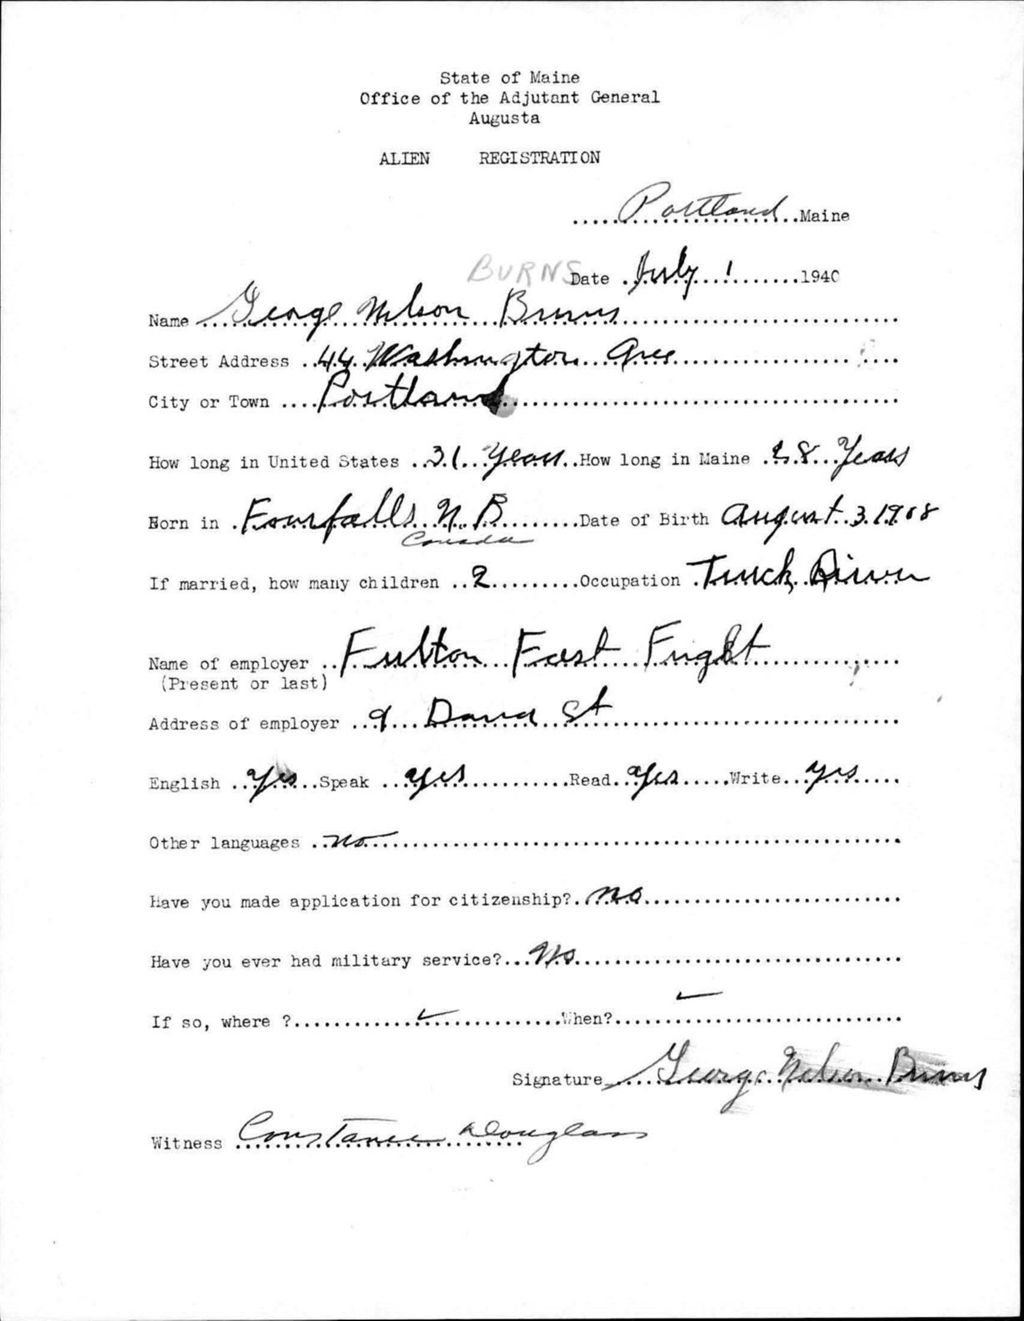 State of Maine
Office of the Adjutant General
Augusta
ALIEN REGISTRATION
.....Portland..Maine
BURNS
Date .July 1.......1940
Name ..George Nelson Burns..............................
Street Address ..44 Washington Ave......................
City or Town ....Portland...............................
How long in United States ..31 Years..How long in Maine .28 Years
Born in .Fourfalls N.B........Date of Birth August 3, 1908
Canada
If married, how many children ..2.........Occupation .Truck Driver
Name of employer ..Fulton Fast Freight..............
(Present or last)
Address of employer ..9 Dana St..............................
English ..Yes...Speak ...yes............Read.Yes.....Write...yes.....
Other languages ..no..................................................
Have you made application for citizenship?.no..........................
Have you ever had military service?...No................................
If so, where ?..........................When?............................
Signature George Nelson Burns
Witness Constance Douglass